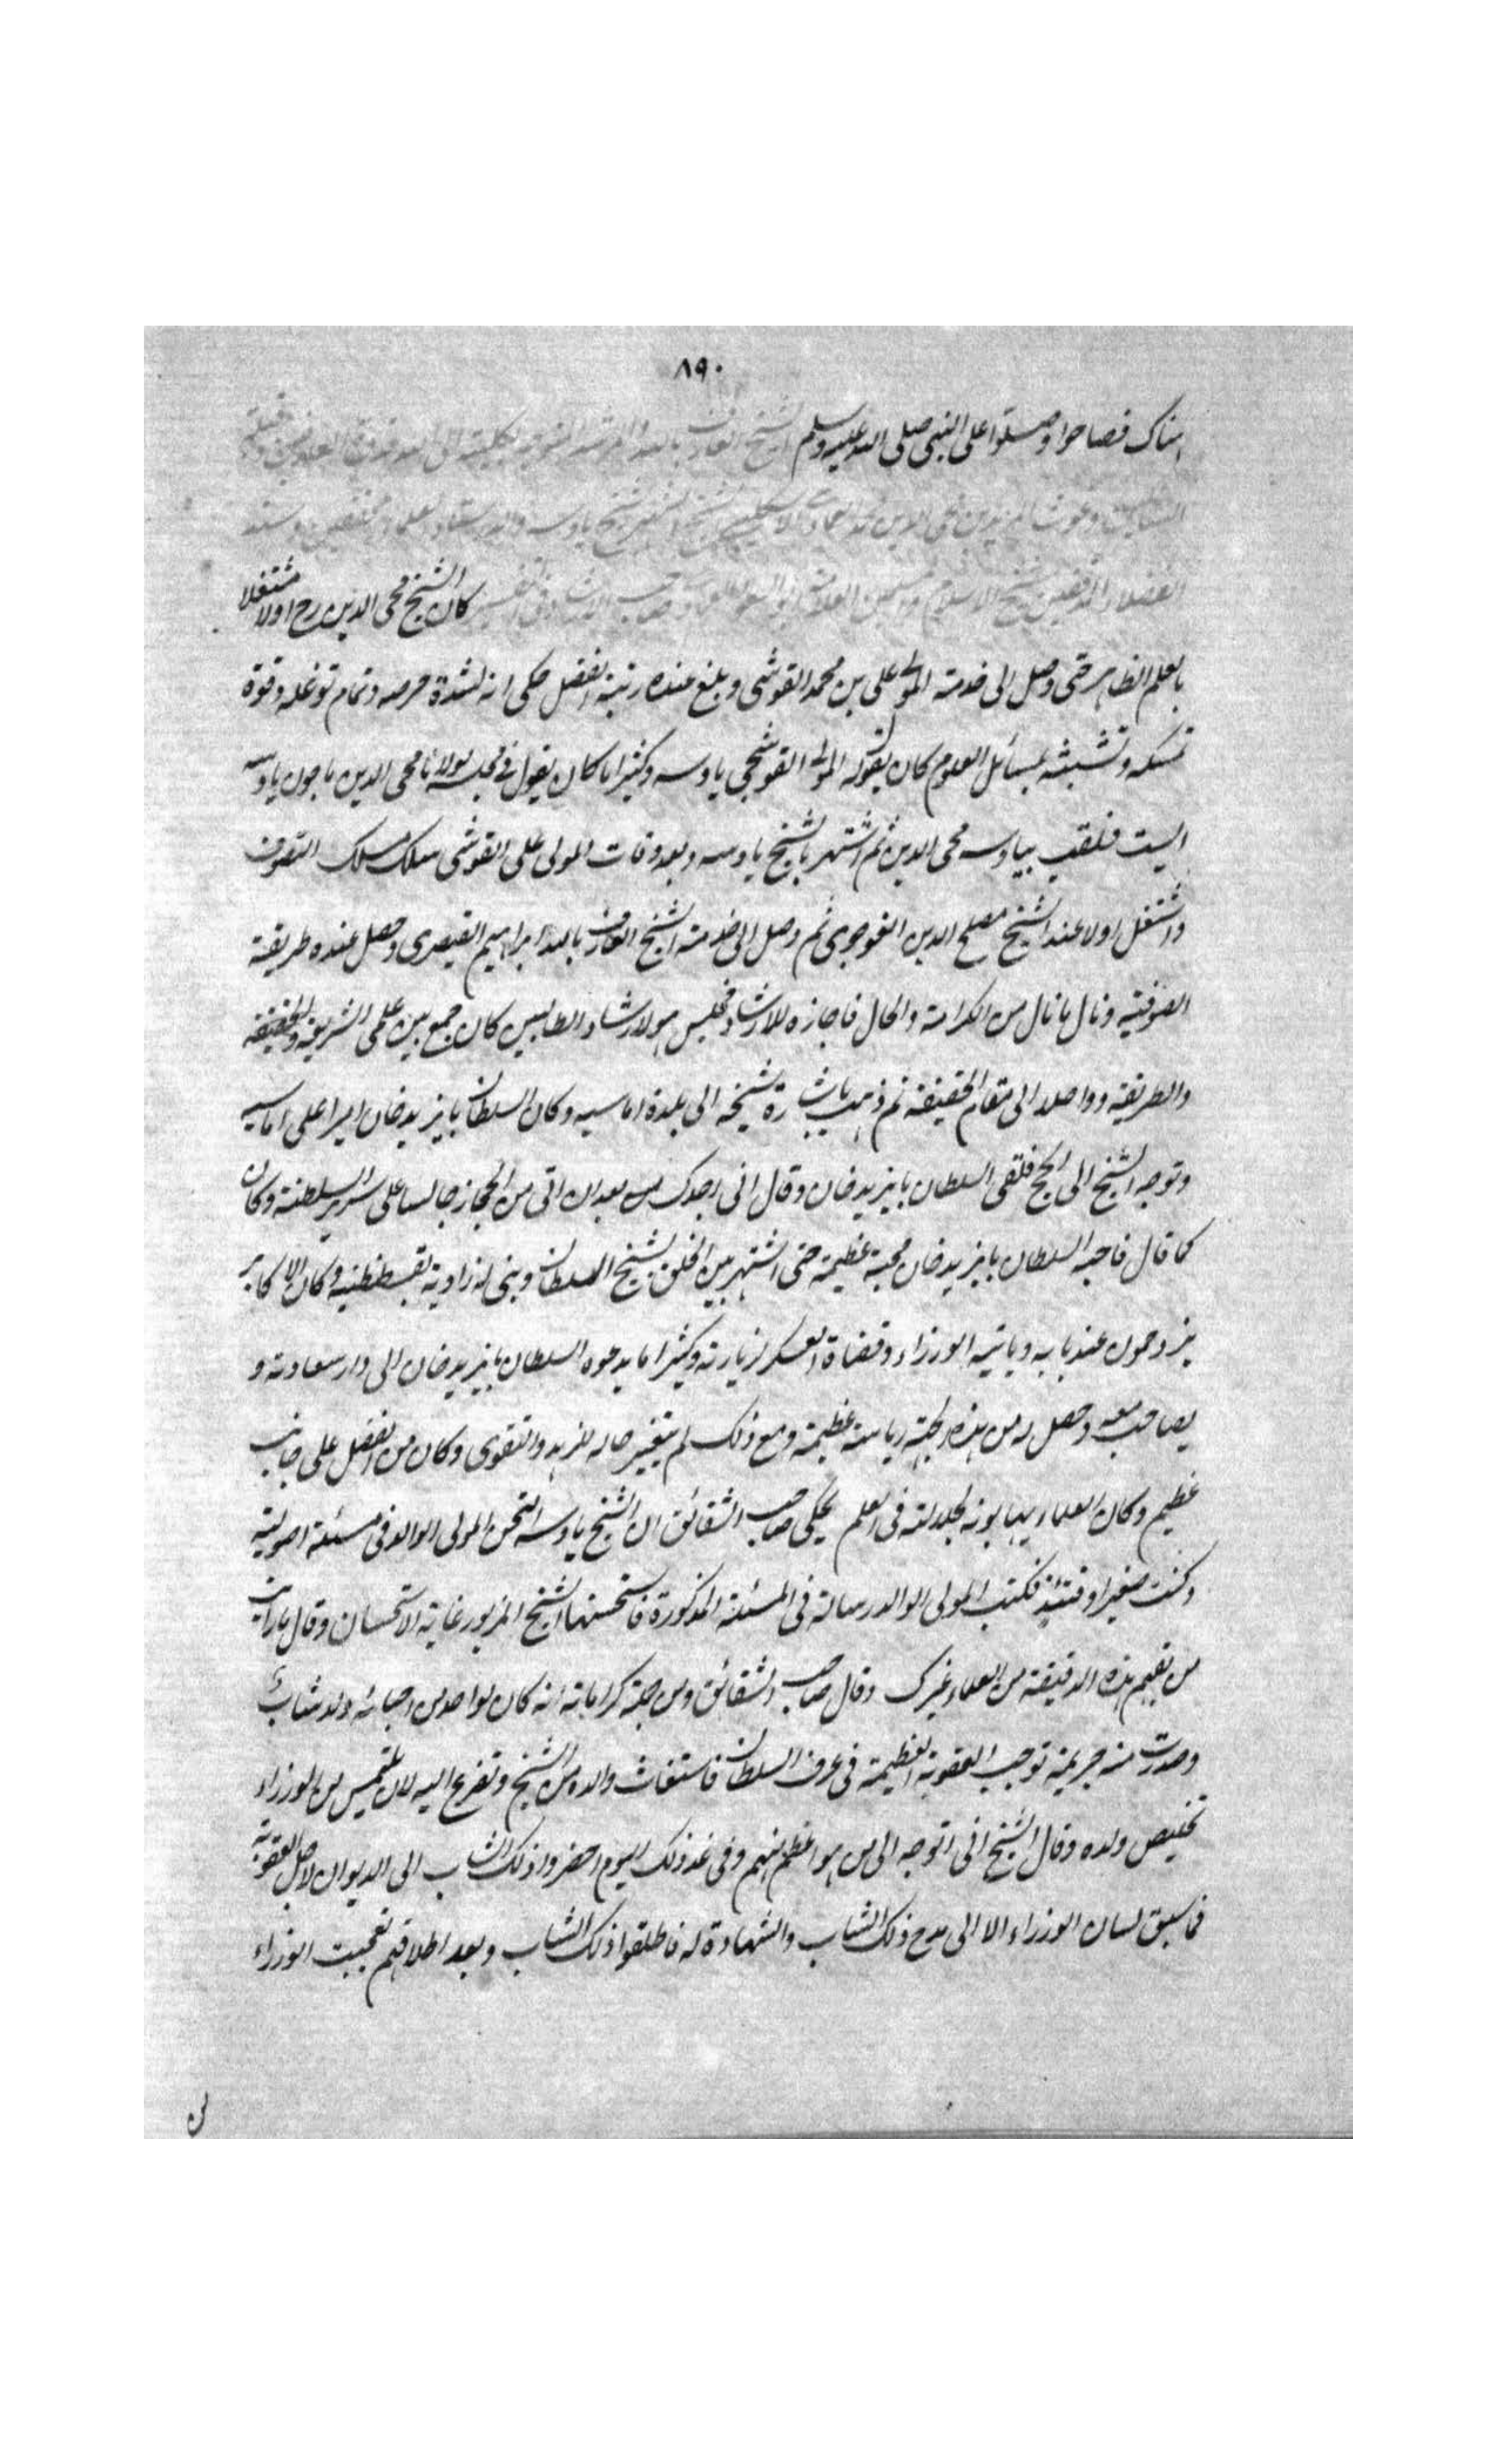 ٨٩٠
هناك فصاحوا وصلوا على النبى صلى الله عليه وسلم الشيخ العارف بالله المرشد المتوجه بكليته الى الله قدوة العارفين
السالكين وغوث المريدين محى الدين محمد العمادى الاسكليبى الشيخ الشهير بشيخ ياوسه والد استاد العلماء المحققين وسند
الفضلاء المدققين شيخ الاسلام ابو السعود العمادى صاحب الارشاد فى التفسير كان الشيخ محى الدين رح اولا مشتغلا
بالعلم الظاهر حتى وصل الى خدمة المولى على بن محمد القوشى وبلغ عنده رتبة الفضل حكى انه لشدة حرصه وتمام توغله وقوة
تمسكه وتشبثه بمسائل العلوم كان يقول له المولى القوشجى ياوسه وكثيرا ما كان يقول فى مجلسه مولانا محى الدين ياوسه
الست فلقب بياوسه محى الدين ثم اشتهر بالشيخ ياوسه وبعد وفات المولى على القوشى سلك مسلك التصوف
واشتغل اولا عند الشيخ مصلح الدين القوجوى ثم وصل الى خدمة الشيخ العارف بالله ابراهيم القيصرى وحصل عنده طريقة
الصوفية ونال ما نال من الكرامة والحال فاجازه للارشاد فجلس هو لارشاد الطالبين كان جمع بين علمى الشريعة والحقيقة
والطريقة وواصلا الى مقام الحقيقة ثم ذهب باشارة شيخه الى بلدة اماسيه وكان السلطان بايزيد خان اميرا على اماسيه
وتوجه الشيخ الى الحج فلقى السلطان بايزيد خان وقال انى اجدك بعد ان اتى من الحجاز جالسا على سرير السلطنة وكان
كما قال فاحبه السلطان بايزيد خان محبة عظيمة حتى اشتهر بين الخلق بشيخ السلطان وبنى له زاوية بقسطنطنية وكان الاكابر
يزدحمون عند بابه وياتيه الوزراء وقضاة العسكر لزيارته وكثيرا ما يدعوه السلطان بايزيد خان الى دار سعادته و
يصاحب معه وحصل له من هذه الجهة رياسة عظيمة ومع ذلك لم يتغير حاله للزهد والتقوى وكان من الفضل على جانب
عظيم وكان العلماء يهابونه لجلالته فى العلم يحكى صاحب الشقائق ان الشيخ ياوسه امتحن المولى الوالد فى مسئلة اصولية
وكنت صغيرا وقتئذ فكتب المولى الوالد رسالة فى المسئلة المذكورة فاستحسنها الشيخ المزبور غاية الاستحسان وقال ما رايت
من يفهم هذه الدقيقة من العلماء غيرك وقال صاحب الشقائق ومن جملة كراماته انه كان لواحد من احبائه ولد شاب
وصدرت منه جريمة توجب العقوبة العظيمة فى عرف السلطان فاستغاث والده من الشيخ وتضرع اليه لان يلتمس من الوزراء
تخليص ولده وقال الشيخ انى اتوجه الى من هو اعظم منهم وفى غد ذلك اليوم احضروا ذلك الشاب الى الديوان لاجل العقوبة
فما سبق لسان الوزراء الا الى مدح ذلك الشاب والشهادة له فاطلقوا ذلك الشاب وبعد اطلاقهم تعجبت الوزراء